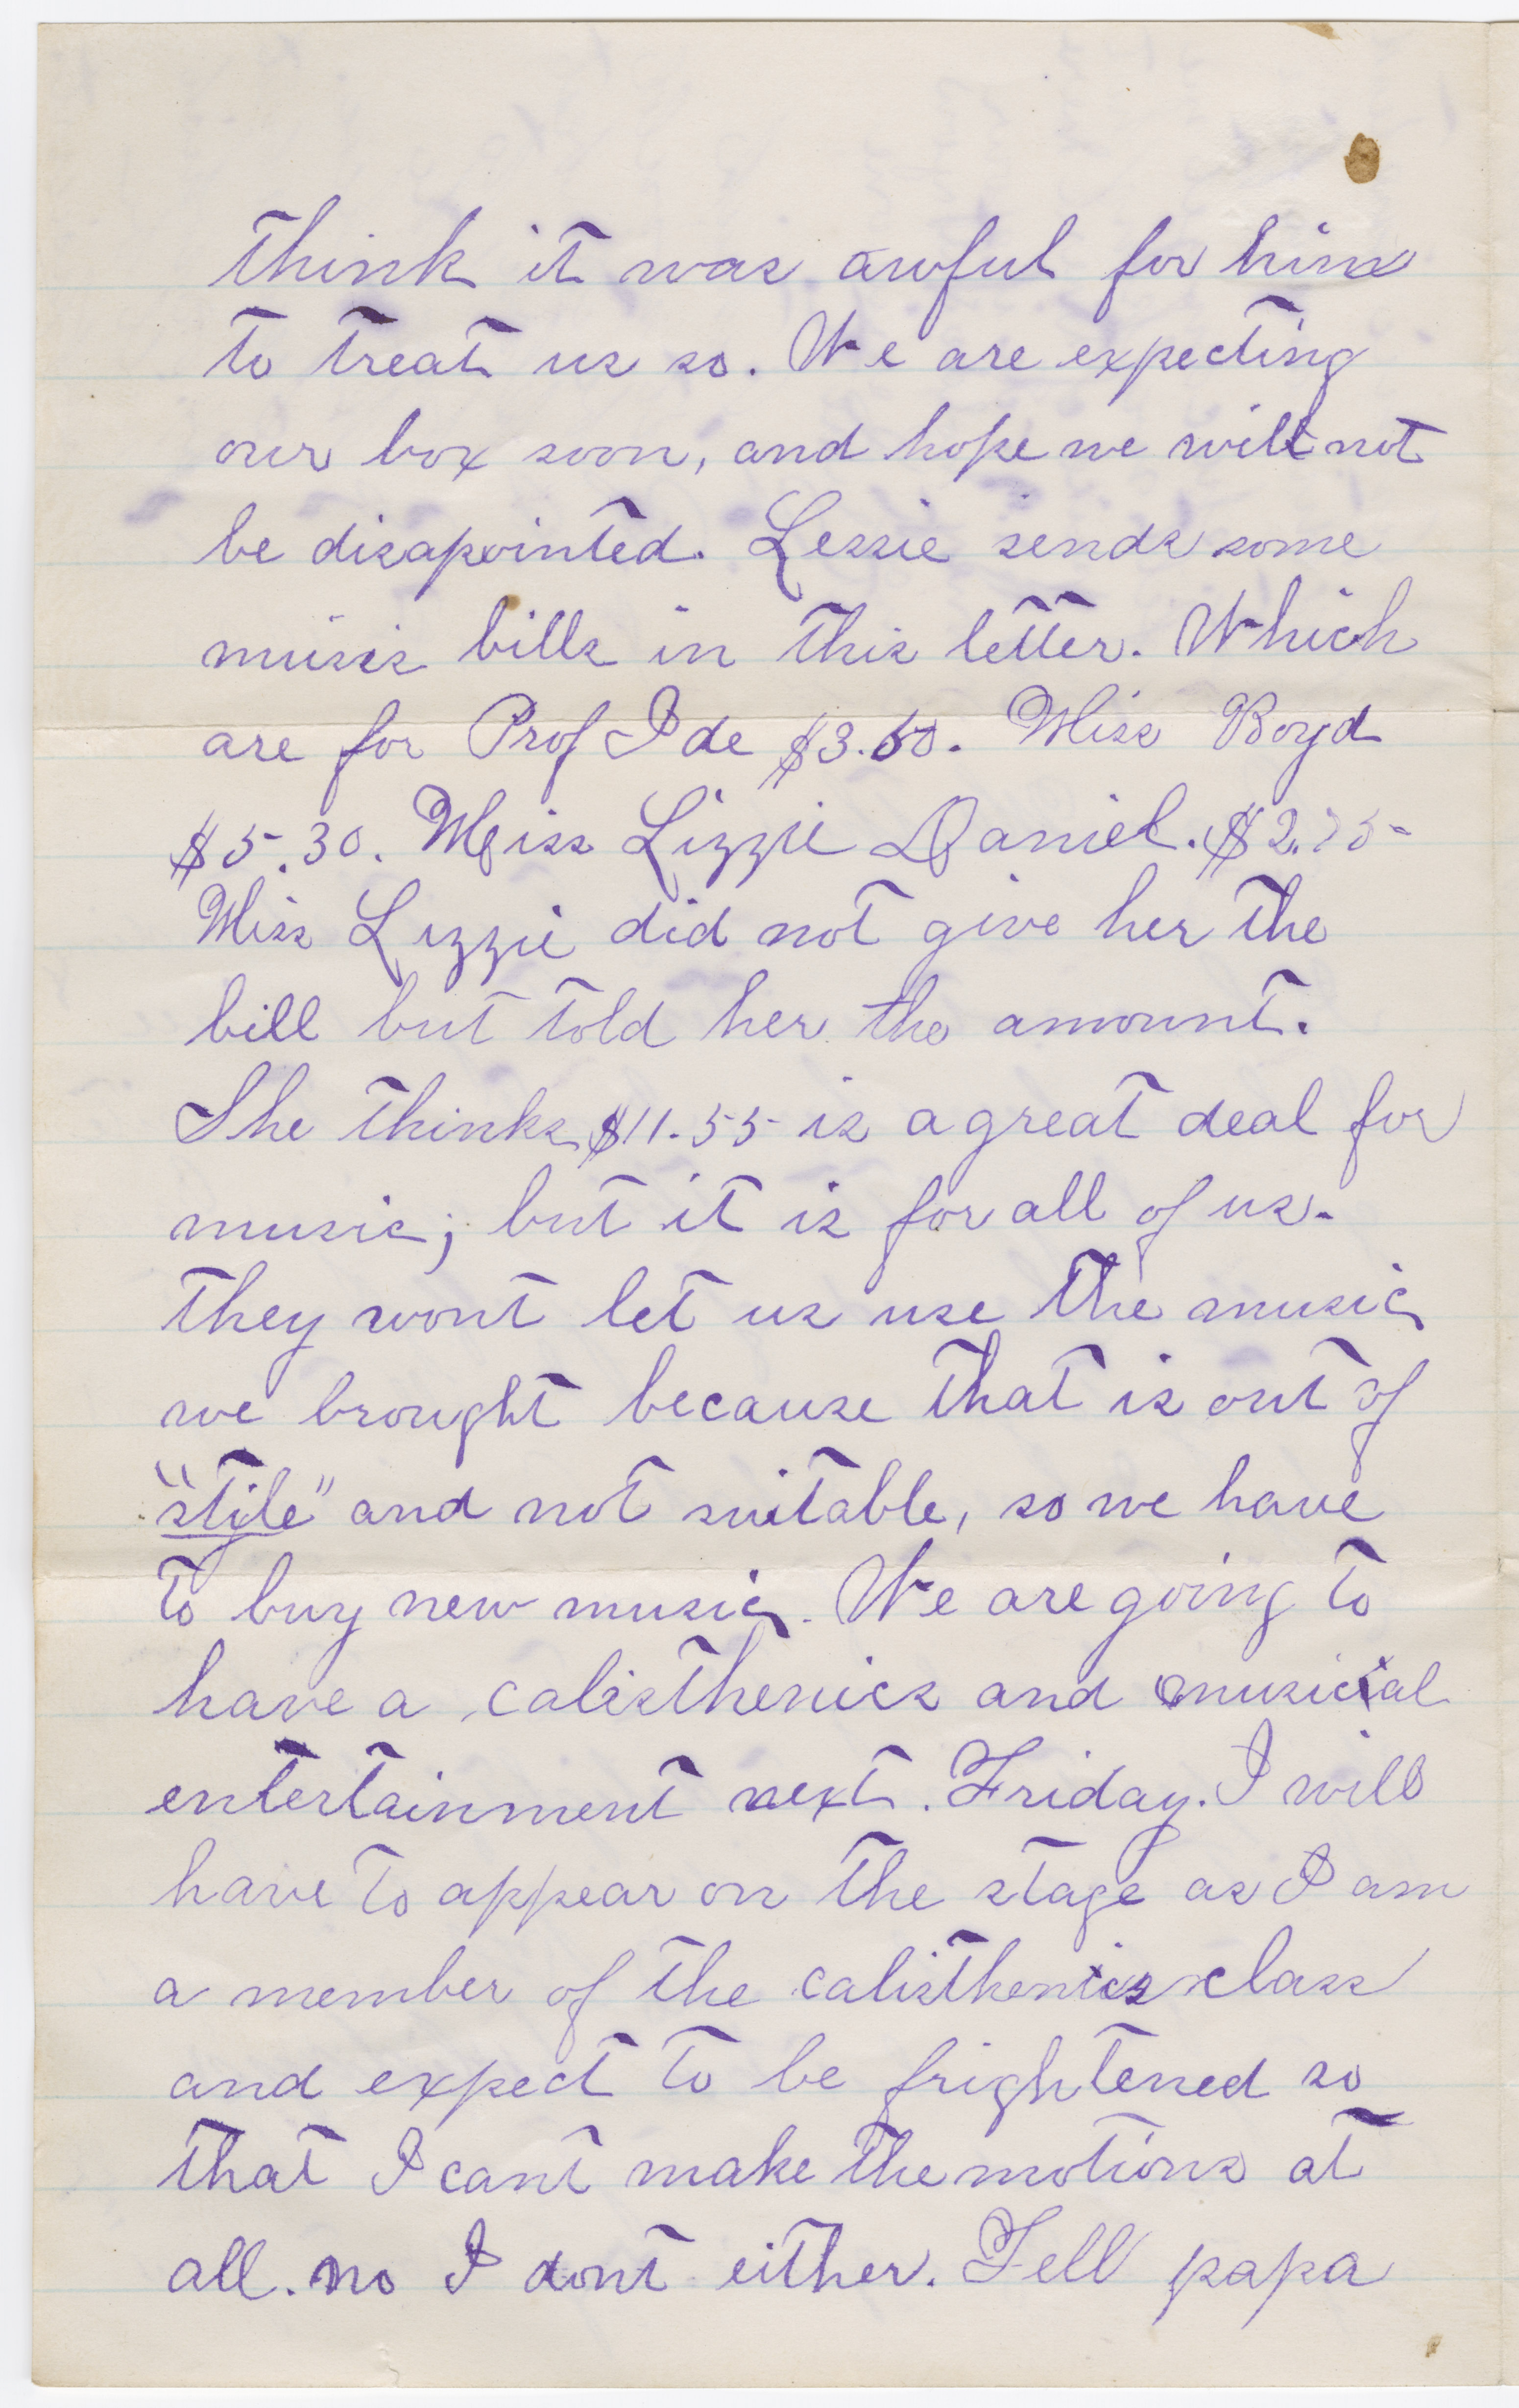 think it was awful for him
to treat us so. We are expecting
our box soon, and hope we will not
be disapointed. Lessie sends some
music bills in this letter. Which
are for Prof Ide $3.50. Miss Boyd
$5.30. Miss Lizzie Daniel. $2.75-
Miss Lizzie did not give her the
bill but told her the amount.
She thinks $11.55 is a great deal for
music; but it is for all of us.
They wont let us use the music
we brought because that is out of
"stile" and not suitable, so we have
to buy new music. We are going to
have a calisthenics and musical
entertainment next. Friday. I will
have to appear on the stage as I am
a member of the calisthenics class
and expect to be frightened so
that I cant make the motions at
all. no I dont either. Tell papa